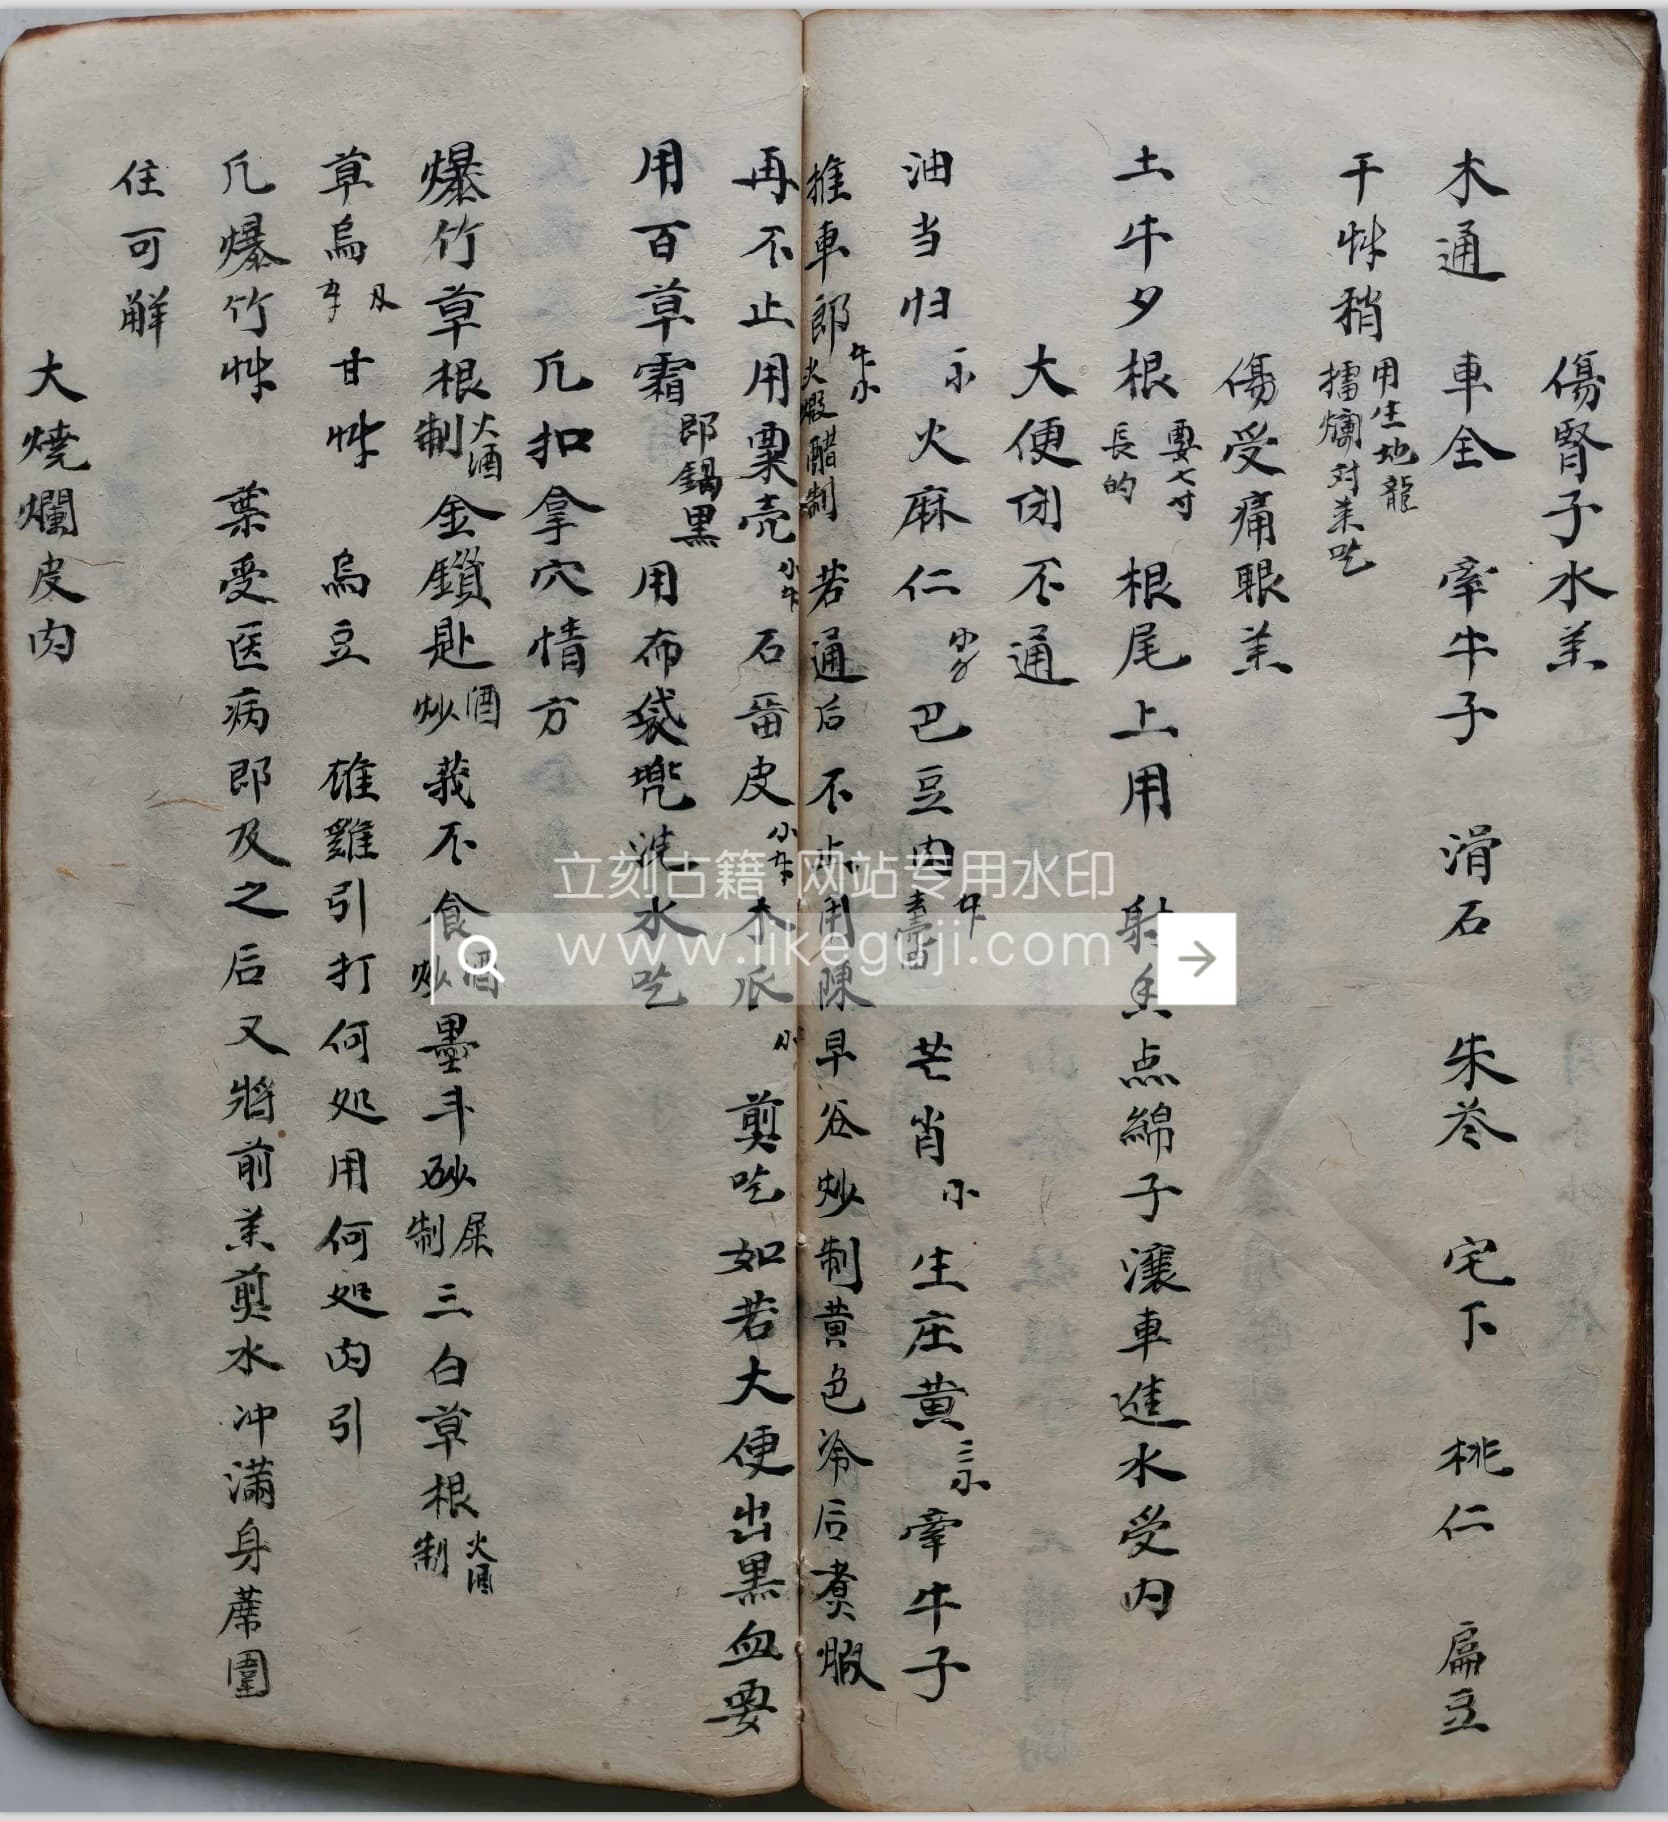 傷腎子水羔
木通 車全 牽牛子 滑石 朱苓 宅下 桃仁 扁豆
干艸稍 用生地龍 擂爛对羔吃
傷受痛眼羔
土牛夕根 要七寸 長的 根尾上用 射香点綿子瀼車進水受内
大便闭不通
油当归 火麻仁 巴豆肉 芒肖 生庄黄 牽牛子
推車郎 火煆醋制 若通后不止用陳早谷炒制黄色冷后煑煆
再不止用粟壳 石畨皮 木爪 剪吃如若大便出黒血要
用百草霜 即鍋黒 用布袋兠洗水吃
凢扣拿穴情方
爆竹草根 火酒制 金鎖匙 酒炒 莪不食 酒炒 墨斗砂 屎制 三白草根 火酒制
草烏 甘艸 烏豆 雄雞引打何処用何処肉引
凢爆竹艸 葉受医病即及之后又將前羔剪水冲滿身蓆圍
住可解
大燒爛皮肉
立刻古籍 网站专用水印
www.likeguji.com